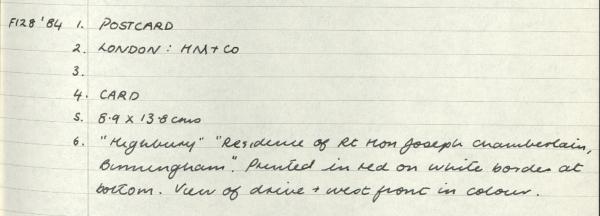 F128'84 1. POSTCARD
2. LONDON: HM+CO
3.
4. CARD
5. 8.9 X 13.8 cms
6. "Highbury" "Residence of Rt Hon Joseph Chamberlain,
Birmingham". Printed in red on white border at
bottom. View of drive + west front in colour.